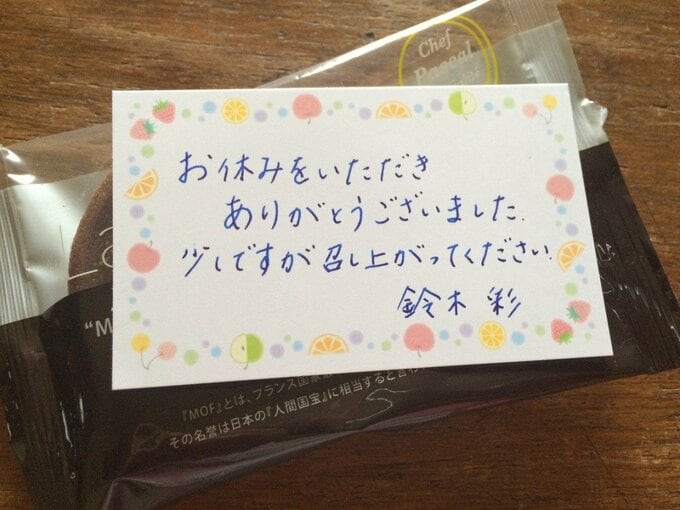 Chef
Pascal
お休みをいただき
ありがとうございました.
少しですが召し上がってください.
鈴木 彩
"M
『MOF』とは、フランス国家
その名誉は日本の『人間国宝』に相当すると言わ